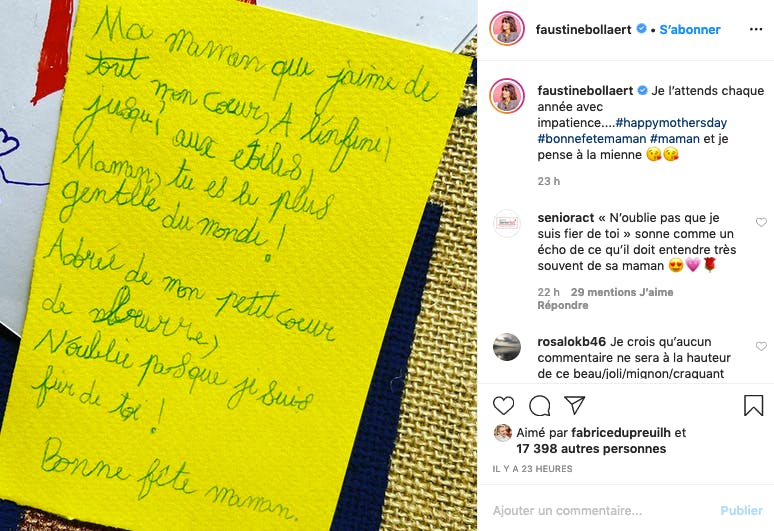 Ma maman que j'aime de
tout mon coeur, A l'infini
jusqu' aux etoiles,
Maman, tu es la plus
gentille du monde !
Adorée de mon petit coeur
de beurre,
N'oublie pas que je suis
fier de toi !
Bonne fête maman.
faustinebollaert • S'abonner
faustinebollaert Je l'attends chaque
année avec
impatience....#happymothersday
#bonnefetemaman #maman et je
pense à la mienne 😘😘
23 h
senioract « N'oublie pas que je
suis fier de toi » sonne comme un
écho de ce qu'il doit entendre très
souvent de sa maman 😍💗🌹
22 h 29 mentions J'aime
Répondre
rosalokb46 Je crois qu'aucun
commentaire ne sera à la hauteur
de ce beau/joli/mignon/craquant
Aimé par fabricedupreuilh et
17 398 autres personnes
IL Y A 23 HEURES
Ajouter un commentaire... Publier